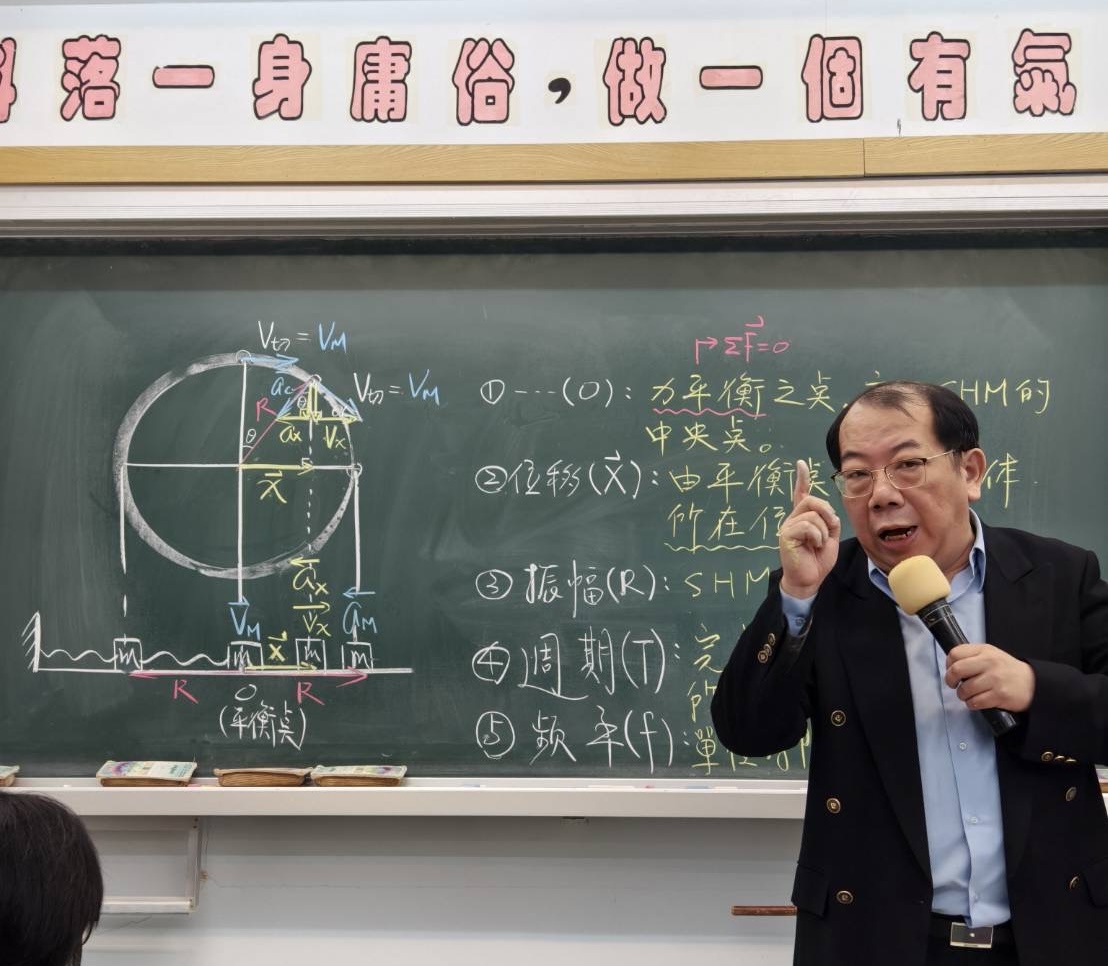 落一身庸俗，做一個有氣
V切=VM
V切=VM
ac
R
θ
θ
ax
Vx
X
ax
VM
Vx
aM
m
m
x
m
m
R
O
R
(平衡點)
ΣF=0
①---(O):力平衡之点
SHM的
中央点。
②位移(X):由平衡点
体
所在位
③振幅(R):SHM
④週期(T):完
所
⑤頻率(f):單位時